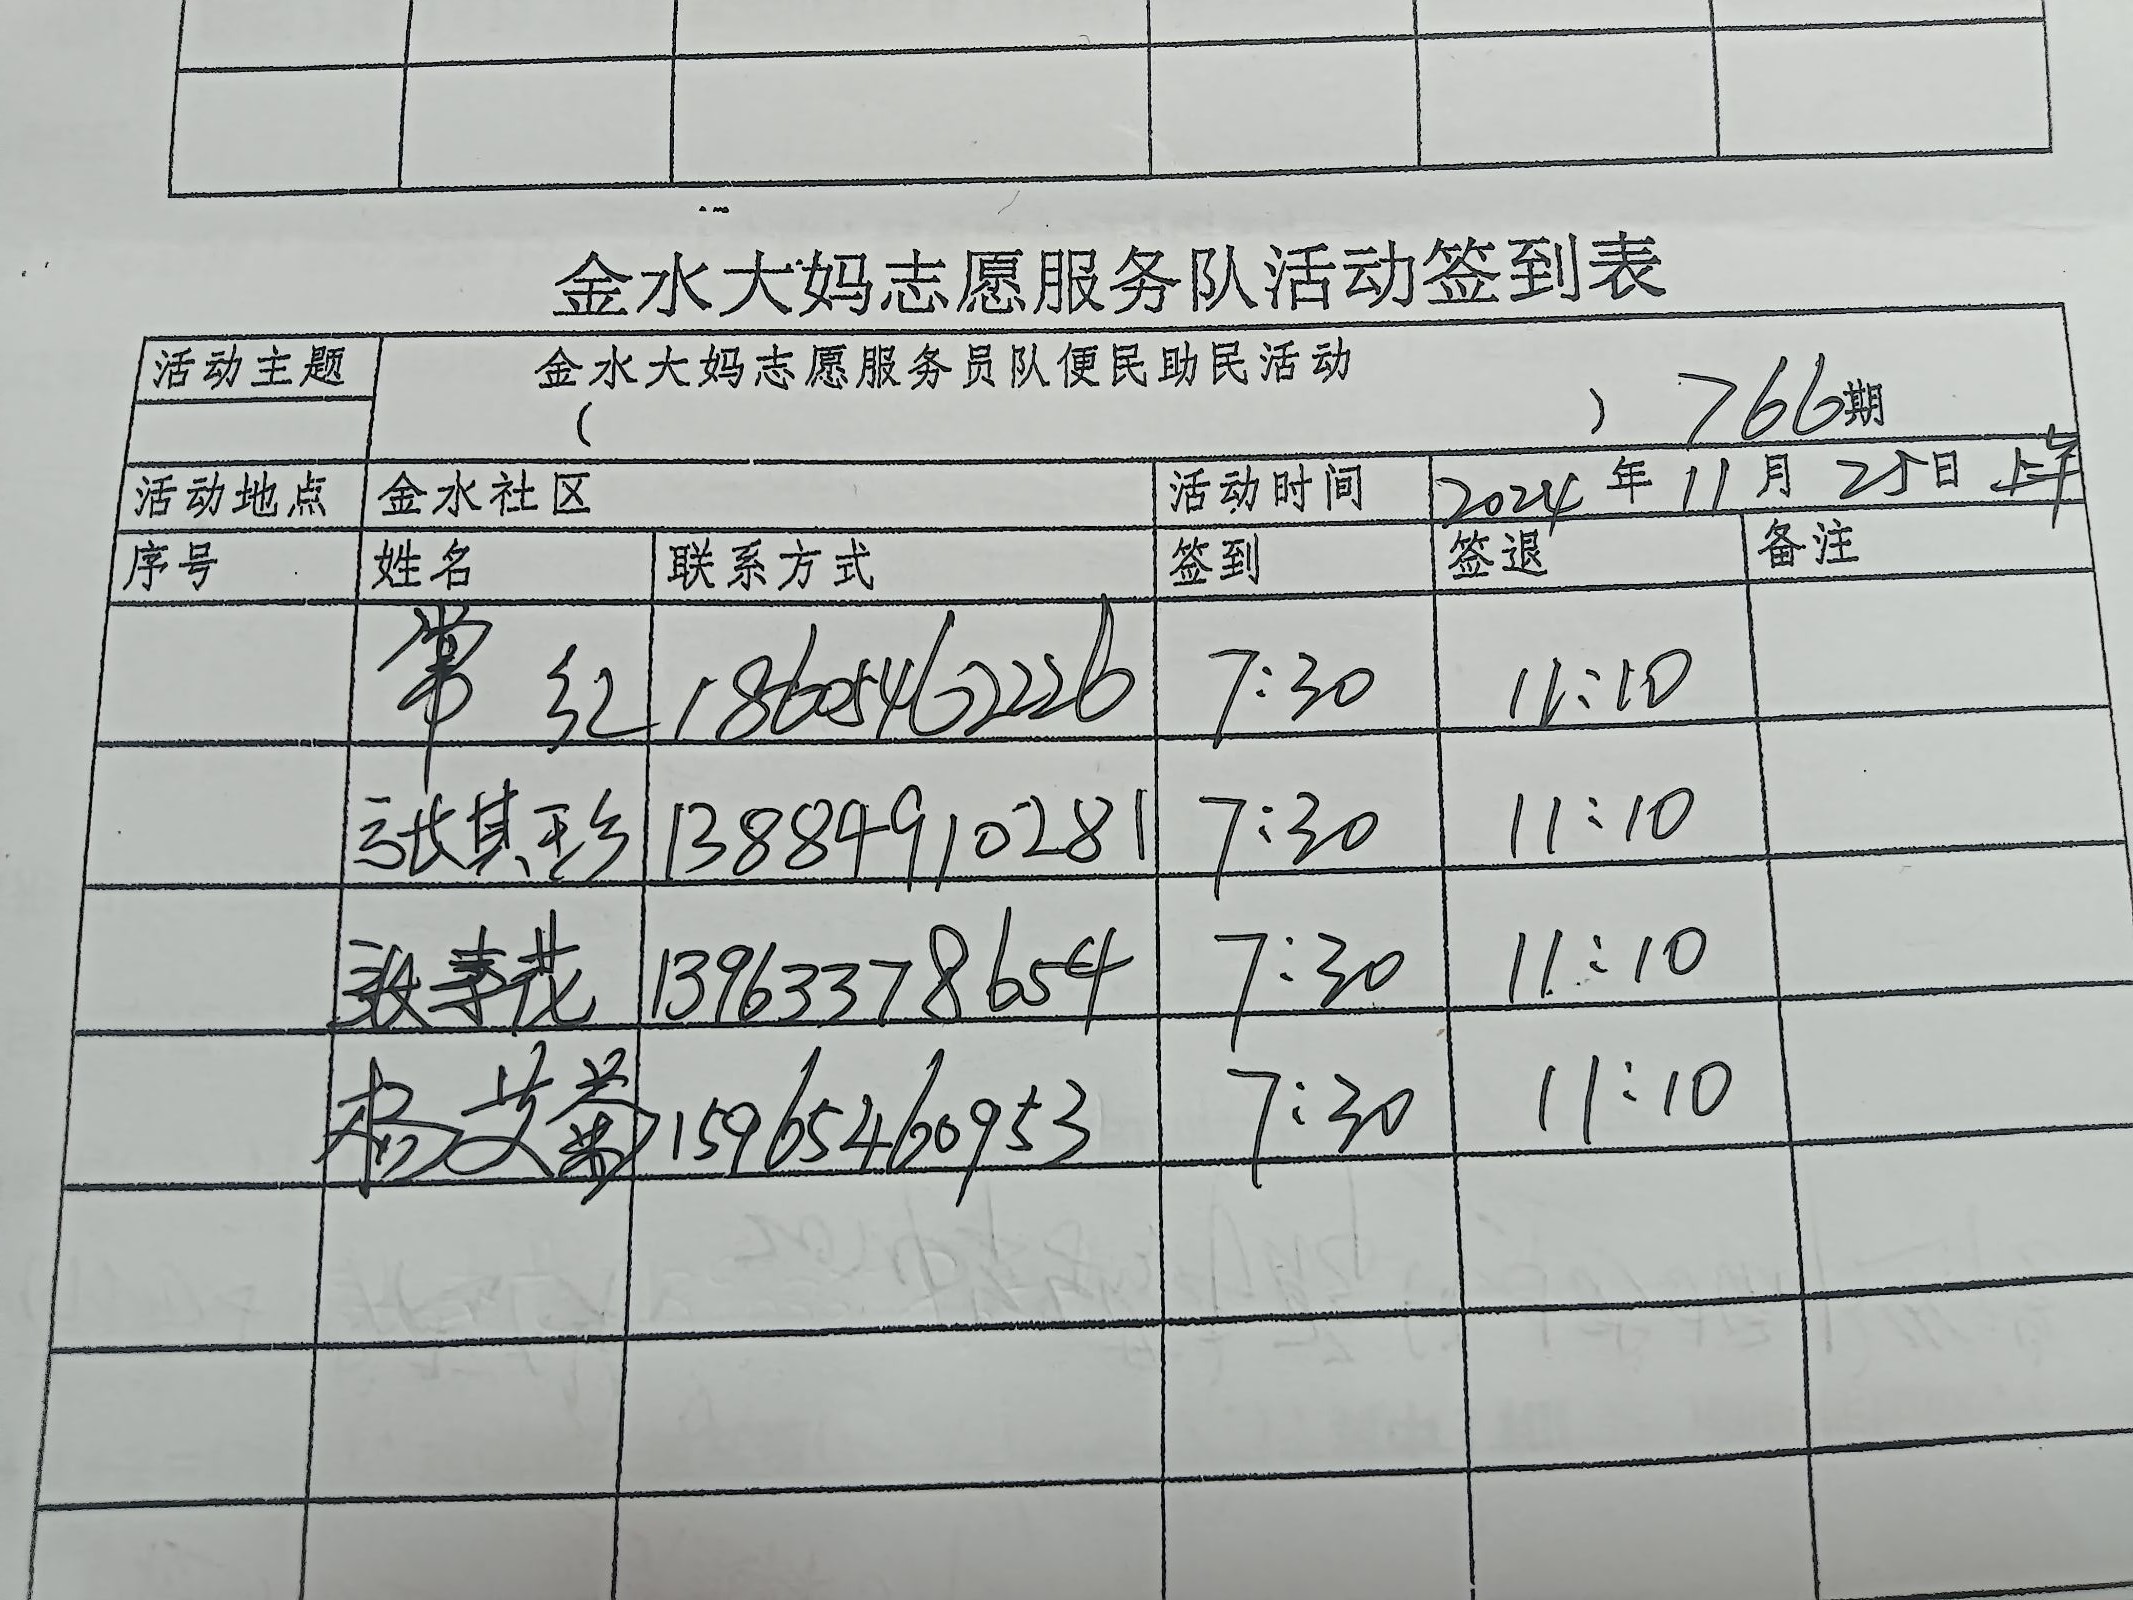 金水大妈志愿服务队活动签到表
活动主题 金水大妈志愿服务员队便民助民活动
( ) 766期
活动地点 金水社区 活动时间 2024年11月25日上午
序号 姓名 联系方式 签到 签退 备注
常红 18605462226 7:30 11:10
张其珍 13884910281 7:30 11:10
张李花 13963378654 7:30 11:10
杨艾菊 15965460953 7:30 11:10